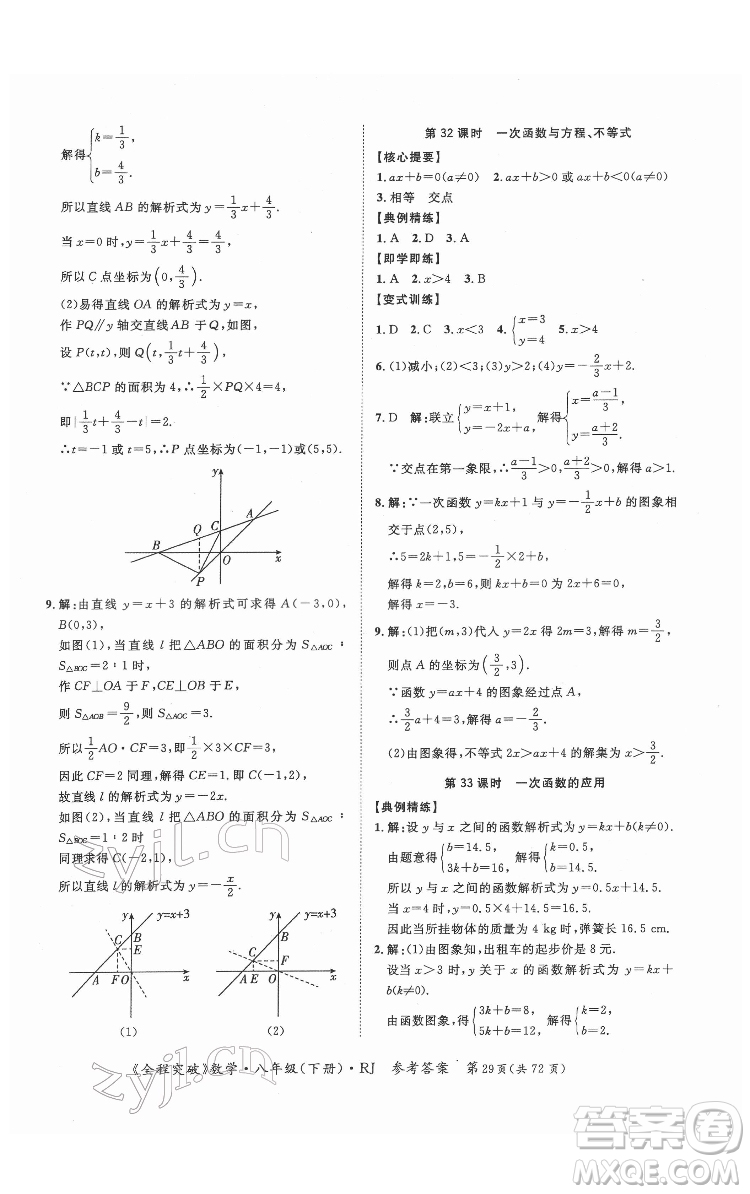 解得{k=1/3,
b=4/3.
所以直线 AB 的解析式为 y=1/3x+4/3.
当 x=0 时,y=1/3x+4/3=4/3,
所以 C 点坐标为(0,4/3).
(2)易得直线 OA 的解析式为 y=x,
作 PQ∥y 轴交直线 AB 于 Q,如图,
设 P(t,t),则 Q(t,1/3t+4/3),
∵△BCP 的面积为 4,∴1/2×PQ×4=4,
即|1/3t+4/3-t|=2.
∴t=-1 或 t=5,∴P 点坐标为(-1,-1)或(5,5).
y
A
C
Q
B
O
x
P
9.解:由直线 y=x+3 的解析式可求得 A(-3,0),
B(0,3),
如图(1),当直线 l 把△ABO 的面积分为 S△AOC∶
S△BOC=2∶1 时,
作 CF⊥OA 于 F,CE⊥OB 于 E,
则 S△AOB=9/2,则 S△AOC=3.
所以1/2AO·CF=1/2×3×CF=3.
因此 CF=2 同理,解得 CE=1.所以 C(-1,2),
故直线 l 的解析式为 y=-2x.
如图(2),当直线 l 把△ABO 的面积分为 S△AOC∶
S△BOC=1∶2 时
同理求得 C(-2,1),
所以直线 l 的解析式为 y=-x/2.
y y=x+3
B
C E
A F O x
(1)
y y=x+3
B
C F
A E O x
(2)
第 32 课时 一次函数与方程、不等式
【核心提要】
1.ax+b=0(a≠0) 2.ax+b>0 或 ax+b<0(a≠0)
3.相等 交点
【典例精练】
1.A 2.D 3.A
【即学即练】
1.A 2.x>4 3.B
【变式训练】
1.D 2.C 3.x<3 4.{x=3 y=4 5.x>4
6.(1)减小;(2)<3;(3)<2;(4)y=-2/3x+2.
7.D 解:联立{y=x+1, y=-2x+a, 解得{x=(a-1)/3, y=(a+2)/3.
∵交点在第一象限,∴(a-1)/3>0,(a+2)/3>0.解得 a>1.
8.解:∵一次函数 y=kx+1 与 y=-1/2x+b 的图象相
交于点(2,5),
∴5=2k+1,5=-1/2×2+b,
解得 k=2,b=6,则 kx+b=0 为 2x+6=0,
解得 x=-3.
9.解:(1)把(m,3)代入 y=2x 得 2m=3,解得 m=3/2,
则点 A 的坐标为(3/2,3).
∵函数 y=ax+4 的图象经过点 A,
∴3/2a+4=3,解得 a=-2/3.
(2)由图象得,不等式 2x>ax+4 的解集为 x>3/2.
第 33 课时 一次函数的应用
【典例精练】
1.解:设 y 与 x 之间的函数解析式为 y=kx+b(k≠0),
由题意得{k+b=14.5, 3k+b=15.5,解得{k=0.5, b=14.
所以 y 与 x 之间的函数解析式为 y=0.5x+14.
因此当所挂物体的质量为 4 kg 时,弹簧长 16.5 cm.
2.解:(1)由图象知,出租车的起步价是 8 元.
设当 x>3 时,y 关于 x 的函数解析式为 y=kx+
b(k≠0).
由函数图象,得{3k+b=8, 5k+b=12,解得{k=2, b=2.
《全程突破》数学·八年级(下册)·RJ 参考答案 第29页(共72页)
zyjl.cn
zyjl.cn
答案圈
MXQE.COM